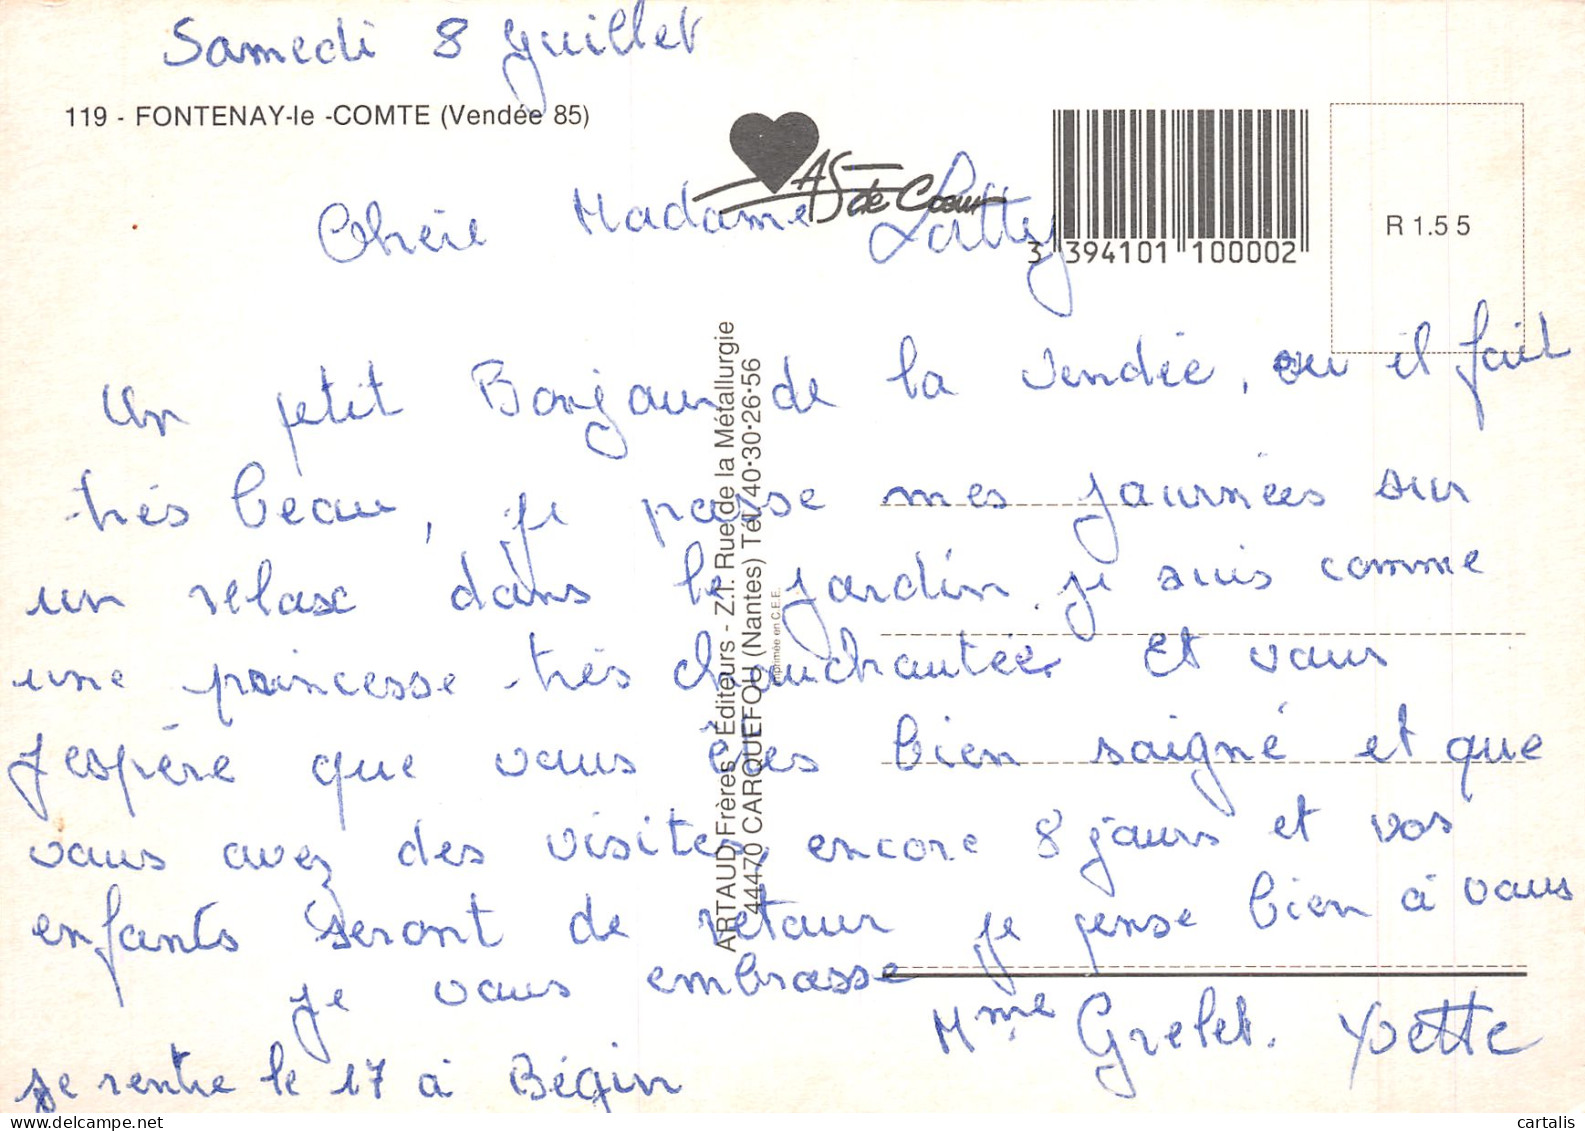 Samedi 8 Juillet
119 - FONTENAY-le -COMTE (Vendée 85)
AS de Cœur
3 394101 100002
R 1.55
Chère Madame Lattey
Un petit Bonjour de la Vendée, ou il fait
très beau, je passe mes journées sur
un relax dans le jardin, je suis comme
une princesse très chouchoutée. Et vous
J'espère que vous êtes bien soigné et que
vous avez des visites, encore 8 jours et vos
enfants seront de retour je pense bien à vous
je vous embrasse
Mme Grelet. Yvette
Je rentre le 17 à Bégin
ARTAUD Frères Éditeurs - Z.I. Rue de la Métallurgie
44470 CARQUEFOU (Nantes) Tél. 40·30·26·56
Imprimée en C.E.E.
cartalis